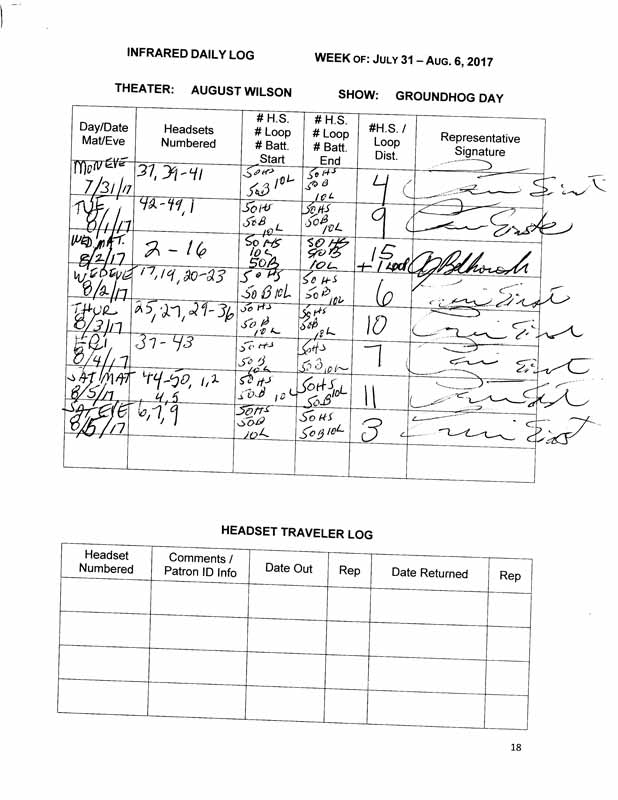 INFRARED DAILY LOG
WEEK OF: JULY 31 – AUG. 6, 2017
THEATER: AUGUST WILSON SHOW: GROUNDHOG DAY
Day/Date Mat/Eve
Headsets Numbered
# H.S. # Loop # Batt. Start
# H.S. # Loop # Batt. End
#H.S. / Loop Dist.
Representative Signature
MON EVE 7/31/17 37, 39-41 50HS 50B 10L 50HS 50B 10L 4
TUE 8/1/17 42-49, 1 50HS 50B 10L 50HS 50B 10L 9
WED MAT. 8/2/17 2-16 50HS 10L 50B 50HS 50B 10L 15 + 1 Loop
WED EVE 8/2/17 17, 19, 20-23 50HS 50B 10L 50HS 50B 10L 6
THUR 8/3/17 25, 27, 29-36 50HS 50B 10L 50HS 50B 10L 10
FRI 8/4/17 37-43 50HS 50B 10L 50HS 50B 10L 7
SAT/MAT 8/5/17 44-50, 1, 2 4, 5 50HS 50B 10L 50HS 50B 10L 11
SAT EVE 8/5/17 6, 7, 9 50HS 50B 10L 50HS 50B 10L 3
HEADSET TRAVELER LOG
Headset Numbered
Comments / Patron ID Info
Date Out
Rep
Date Returned
Rep
18